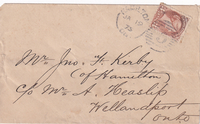 Mr. Jno. F. Kerby
of Hamilton
c/o Mr. A. Heaslip
Wellandport
Onto